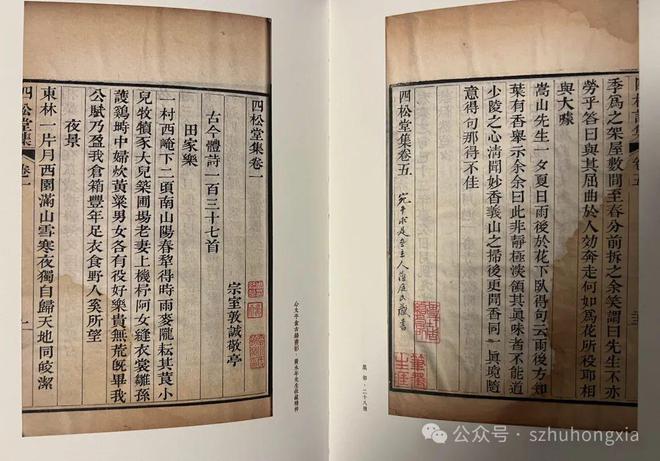 四松堂集 卷五
季為之架屋數間至春分前拆之余笑謂曰先生不亦
勞乎答曰與其屈曲於人効奔走何如為花所役耶相
與大噱
嵩山先生一女夏日雨後於花下臥得句云雨後方知
葉有香舉示余余曰此非靜極淡領其眞味者不能道
少陵之心清聞妙香義山之掃後更聞香同一眞境隨
意得句那得不佳
四松堂集卷五
宛平求是
四松堂集卷一
宗室敦誠敬亭
古今體詩一百三十七首
田家樂
一村西崦下二頃南山陽春犁得時雨麥隴耘其小
兒牧犢豕大兒築圃場老妻上機杼阿女縫衣裳雛孫
護鷄塒中婦炊黃粱男女各有役好樂貴無荒旣畢我
公賦乃盈我倉箱豐年足衣食野人奚所望
夜景
東林一片月西園滿山雪寒夜獨自歸天地同皎潔
四松堂集 卷一 一
心太平盦古籍書影·黃永年先生收藏精粹
公众号 · szhuhongxia